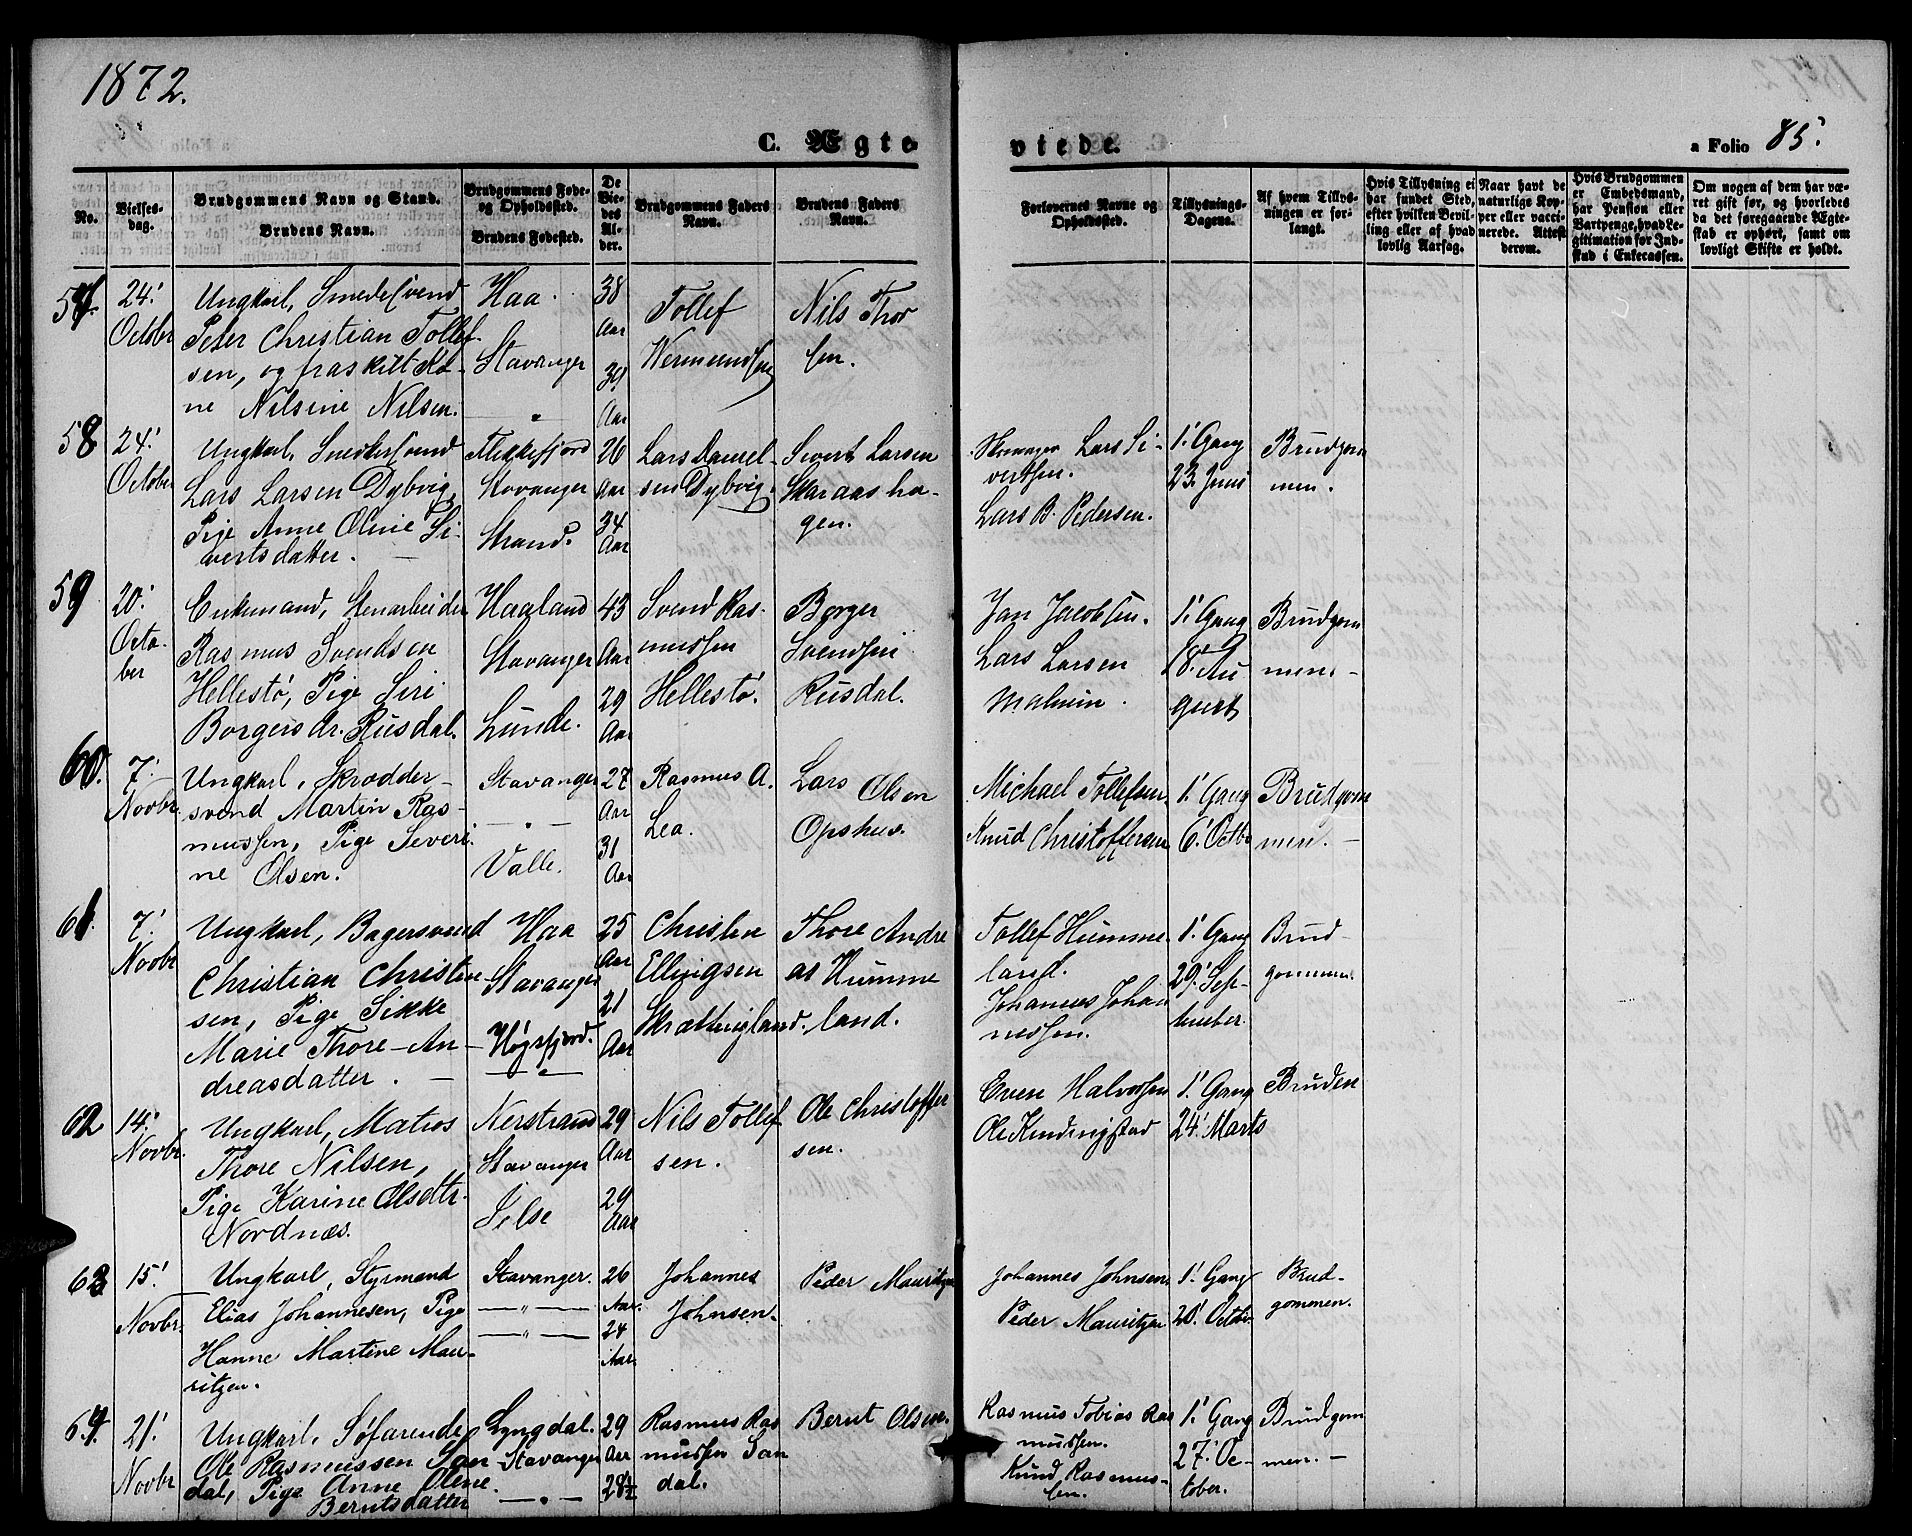 1872.
C. Ægte
viede.
a Folio 85.
No.
Vielses-
dag.
Brudgommens Navn og Stand.
Brudens Navn.
Brudgommens Føde-
og Opholdssted.
Brudens Fødested.
De
Vie-
des
Al-
der.
Brudgommens Faders
Navn.
Brudens Faders
Navn.
Forlovernes Navne og
Opholdssted.
Tillysnings-
Dagene.
Af hvem Tillys-
ningen er for-
langt.
Hvis Tillysning ei
har fundet Sted,
efter hvilken Bevil-
ling eller af hvad
lovlig Aarsag.
Naar havt de
naturlige Kop-
per eller vacci-
nerede. Attest
derom.
Hvis Brudgommen
er Embedsmand,
har Pension eller
Vartpenge, hvad Le-
gitimation for Ind-
skud i Enkecassen.
Om nogen af dem har væ-
ret gift før, og hvorledes
da det foregaaende Ægte-
skab er ophørt, samt om
lovligt Skifte er holdt.
57.
24.
Octobr
Ungkarl, Smedesvend
Peter Christian Tollef-
sen, og fraskilt Ko-
ne Nilsine Nilsen.
Haa.
Stavanger
— „ —
38
Aar
39
Aar
Tollef
Wermundsen
Nils Thor
sen.
58
24.
October
Ungkarl, Snedkersvend
Lars Larsen Dybvig,
Pige Anne Oline Si-
vertsdatter. —
Flekkefjord
Stavanger
Strand.
26
Aar
34
Aar
Lars Daniel-
sen Dybvig.
Sivert Larsen
Skaraasha-
gen.
Lars Si-
vertsen.
Lars B. Pedersen.
1. Gang
23. Juni
Brudgom
men.
59
20.
Octo-
ber
Enkemand, Stenarbeider
Rasmus Svendsen
Hellestö, Pige Siri
Borgersdr. Rusdal.
Haaland
Stavanger
Lunde.
43
Aar
29
Aar
Svend Ras-
mussen
Hellestö.
Borger
Svendsen
Rusdal.
Jan Jacobsen.
Lars Larsen
Malmin.
1. Gang
18. Au
gust
Brudgom
men. —
60.
7.
Novbr.
Ungkarl, Skrædder-
svend Martin Ras-
mussen, Pige Severi-
ne Olsen.
Stavanger
— „ —
Valle.
27
Aar
31
Aar
Rasmus A.
Lea.
Lars Olsen
Opshus.
Michael Tollefsen
Knud Christoffersen
1. Gang
6. Octbr
Brudgom
men. —
61.
7.
Novbr
Ungkarl, Bagersvend
Christian Christen-
sen, Pige Sikke
Marie Thore-An-
dreasdatter. —
Haa
Stavanger
Högsfjord.
— „ —
25
Aar
21
Aar
Christen
Ellingsen
Skrættingland.
Thore Andre
as Humme
land.
Tollef Humme-
land.
Johannes Johan
nessen.
1. Gang
29. Sep-
tember.
Brud-
gommen.
62
14.
Novbr.
Ungkarl, Matros
Thore Nilsen,
Pige Karine Olsdtr.
Nordnæs.
Nerstrand
Stavanger
Jelse
29
Aar
29
Aar
Nils Tollef
sen.
Ole Christoffer
sen.
Even Halvorsen
Ole Kindingstad
1. Gang
24. Marts
Bruden
63
15.
Novbr.
Ungkarl, Styrmand
Elias Johannesen, Pige
Hanne Martine Mau-
ritzen.
Stavanger.
— „ —
— „ —
26
Aar.
24
Aar.
Johannes
Johnsen.
Peder Mauritzen
Johannes Johnsen
Peder Mauritzen
1. Gang
20. Octbr.
Brud-
gommen.
64.
21.
Novbr
Ungkarl, Söfarende
Ole Rasmussen San
dal, Pige Anne Oline
Berntsdatter
Lyngdal.
Stavanger
— „ —
29
Aar
28½
Rasmus Ras
mussen San
dal.
Bernt Olsen.
Rasmus Tobias Ras
mussen.
Knud Rasmus-
sen.
1. Gang
27. Oc-
tober.
Brudgom
men. —